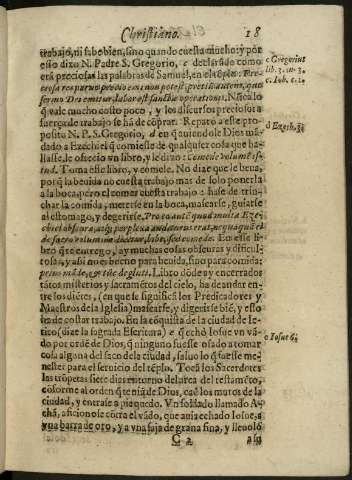 Christiano. 18
trabajo, ni sabe bien, sino quando cuesta mucho: y por
esso dixo N. Padre S. Gregorio, c declarãdo como
erã preciosas las palabras de Samuel, en
c Gregorius
lib. 3. in. 3.
c. Iob. c. 1.
operationis. Nũca lo
q̃ vale mucho costo poco, y los discursos preciosos a
fuerça de trabajo se hã de cõprar. Reparo a este pro-
posito N. P. S. Gregorio, d en q̃ auiendole Dios mã-
d Ezech. 3.
dado a Ezechiel q̃ comiesse de qualquier cosa que ha-
llasse, le ofrecio vn libro, y le dixo: Comede volumẽ is-
tud. Toma esse libro, y comele. No dize que le beua,
porq̃ la beuida no cuesta trabajo mas de solo ponerla
a la boca, pero el comer cuesta trabajo: hase de trin-
char la comida, meterse en la boca, mascarse, guiarse
al estomago, y degerirse.
comede. En esse li-
bro q̃ te entrego, ay muchas cosas obscuras y dificul-
tosas, y assi no es bueno para beuida, sino para comida:
Libro dõde ay encerrados
tãtos misterios y sacramẽtos del cielo, ha de andar en-
tre los diẽtes, (en que se significã los Predicadores y
Maestros de la Iglesia) mascarse, y digerirse biẽ, y esso
ha de costar trabajo. En la cõquista de la ciudad de Ie-
rico (dize la sagrada Escritura) e q̃ echò Iosue vn vã-
e Iosue 6.
do por ordẽ de Dios, q̃ ninguno fuesse osado a tomar
cosa alguna del saco de la ciudad, saluo lo q̃ fuesse me-
nester para el seruicio del tẽplo. Tocã los Sacerdotes
las trõpetas siete dias entorno del arca del testamẽto,
cõforme al orden q̃ teniã de Dios, caẽ los muros de la
ciudad, y entrase a pie quedo. Vn soldado llamado A-
chã, aficionose cõtra el vãdo, que auia echado Iosue, a
vna barra de oro, y a vna saja de grana fina, y lleuolo
C 2 a su